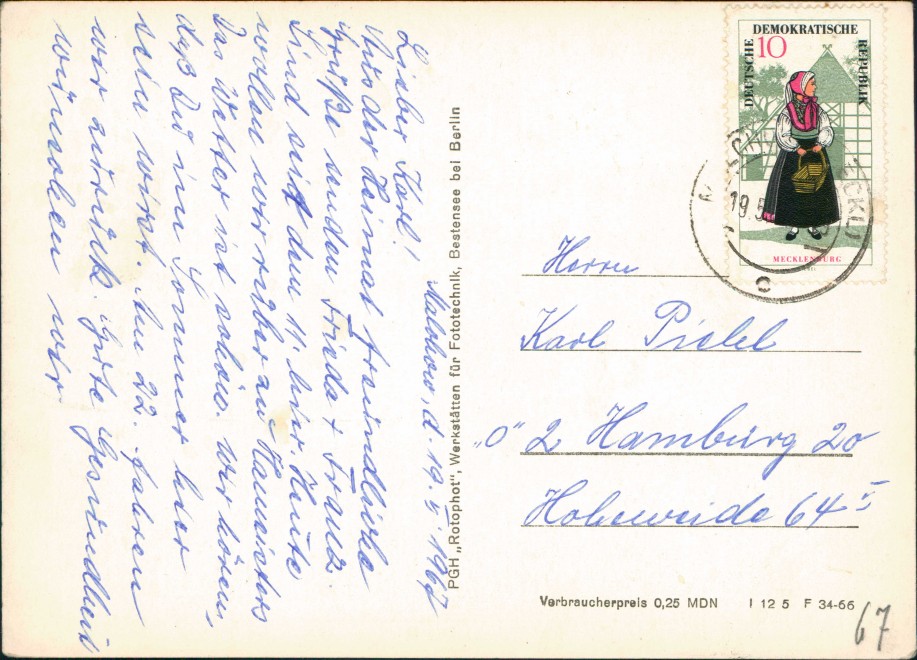 Malchow, d. 19. V. 1967
Lieber Karl!
Aus der Heimat freundliche
Grüße senden Frieda + Franz.
Sind seit dem 11. hier. Heute
wollen wir rüber zu
Das Wetter ist schön. Wir hören,
daß Du im Sommer hier
sein wirst. Am 22. fahren
wir zurück. Gute Gesundheit
wünschen wir
PGH „Rotophot", Werkstätten für Fototechnik, Bestensee bei Berlin
DEUTSCHE DEMOKRATISCHE REPUBLIK
10
MECKLENBURG
19.5
Herrn
Karl Pielel
„O" 2 Hamburg 20
Hoheweide 64 I
Verbraucherpreis 0,25 MDN I 12 5 F 34-66
67